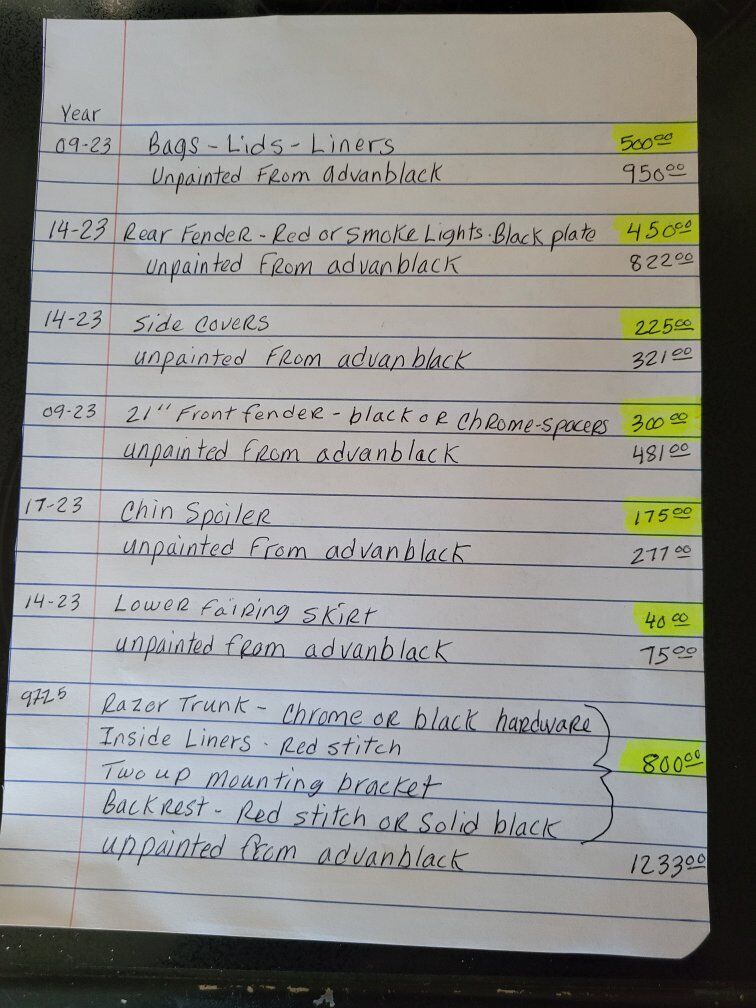 Year
09-23 Bags - Lids - Liners 500.00
Unpainted From advanblack 950.00
14-23 Rear Fender - Red or Smoke Lights. Black plate 450.00
unpainted From advanblack 822.00
14-23 Side Covers 225.00
unpainted From advanblack 321.00
09-23 21" Front fender - black or Chrome-spacers 300.00
unpainted From advanblack 481.00
17-23 Chin Spoiler 175.00
unpainted From advanblack 277.00
14-23 Lower Fairing Skirt 40.00
unpainted from advanblack 75.00
Razor Trunk - Chrome or black hardware
Inside Liners. Red stitch 800.00
Two up mounting bracket
Backrest - Red stitch or Solid black
unpainted from advanblack 1233.00